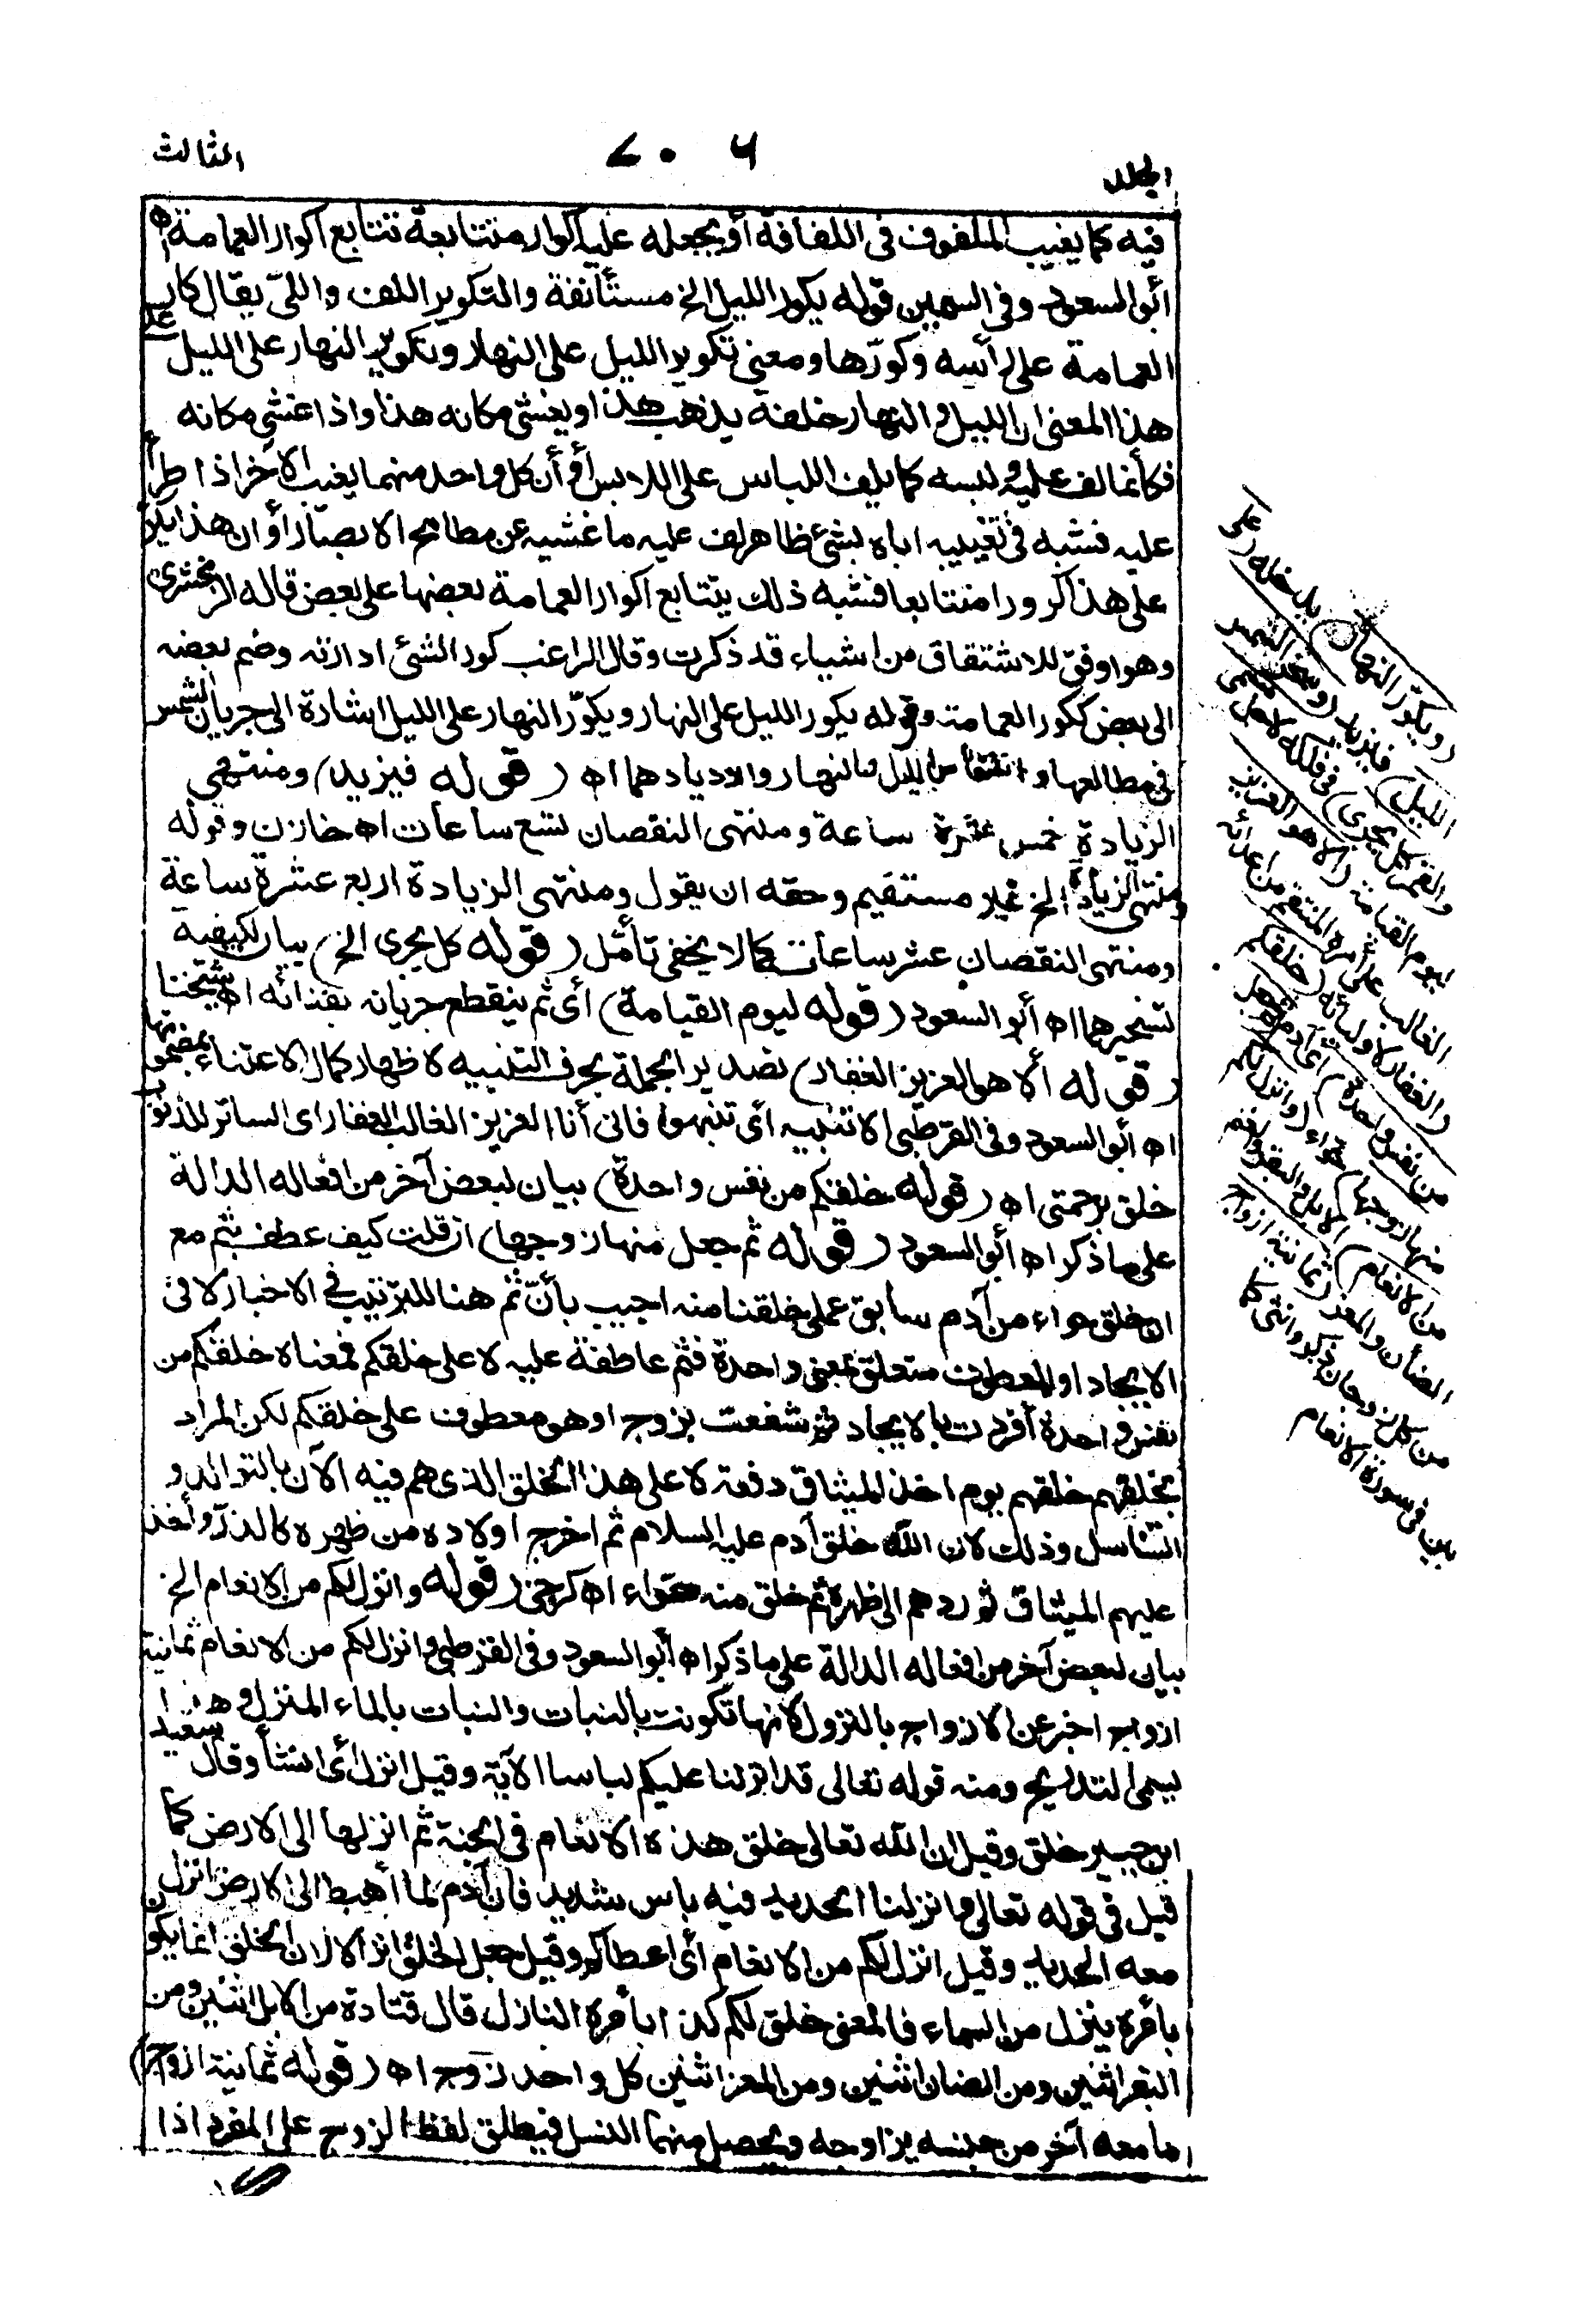 المجلد
٧٠٦
الثالث
فيه كما يغيب الملفوف فى اللفافة أو يجعله عليه أكوارمنتتابعة تتابع أكوار العمامة اه
أبو السعود وفى السمين قوله يكور الليل الخ مستأنفة والتكوير اللف واللىّ يقال كار
العمامة على رأسه وكورّها ومعنى تكوير الليل على النهار وتكوير النهار على الليل على
هذا المعنى ان الليل والنهار خلفة يذهب هذا ويغشى مكانه هذا واذا غشى مكانه
فكأنما لف عليه ولبسه كما يلف اللباس على اللابس أو أن كل واحد منهما يغيب الآخر اذا طرأ
عليه فشبه فى تغييبه اياه بشئ ظاهر لف عليه ما غشيه عن مطامح الابصار أو ان هذا يكر
على هذا كرورا متتابعا فشبه ذلك بتتابع اكوار العمامة بعضها على بعض قاله الزمخشرى
وهو أوفق للاشتقاق من اشياء قد ذكرت وقال الراغب كور الشئ ادارته وضم بعضه
الى بعض ككور العمامة وقوله يكور الليل على النهار ويكوّر النهار على الليل اشارة الى جريان الشمس
فى مطالعها وانتقاص الليل والنهار وازديادهما اه (قوله فيزيد) ومنتهى
الزيادة خمس عشرة ساعة ومنتهى النقصان تسع ساعات اه خازن وقوله
ومنتهى الزيادة الخ غير مستقيم وحقه ان يقول ومنتهى الزيادة اربع عشرة ساعة
ومنتهى النقصان عشر ساعات كما لا يخفى تأمّل (قوله كل يجرى الخ) بيان لكيفية
تسخيرهما اه أبو السعود (قوله ليوم القيامة) أى ثم ينقطع جريانه بفنائه اه شيخنا
(قوله ألا هو العزيز الغفار) تصدير الجملة بحرف التنبيه لاظهار كمال الاعتناء بمضمونها
اه أبو السعود وفى القرطبى الا تنبيه أى تنبهوا فانى أنا العزيز الغالب الغفار اى الساتر للذنوب
خلق برحمتى اه (قوله خلقكم من نفس واحدة) بيان لبعض آخر من افعاله الدالة
على ما ذكر اه أبو السعود (قوله ثم جعل منها زوجها) ان قلت كيف عطف بثم مع
ان خلق حواء من آدم سابق على خلقنا منه اجيب بأنّ ثم هنا للترتيب فى الاخبار لا فى
الايجاد او المعطوف متعلق بمعنى واحدة فثم عاطفة عليه لا على خلقكم فمعناه خلقكم من
نفس واحدة أفردت بالايجاد ثم شفعت بزوج اوهو معطوف على خلقكم لكن المراد
بخلقهم خلقهم يوم اخذ الميثاق دفعة لا على هذا الخلق الذى هم فيه الآن بالتوالد و
التناسل وذلك لان الله خلق آدم عليه السلام ثم اخرج اولاده من ظهره كالذر وأخذ
عليهم الميثاق ثم ردهم الى ظهره ثم خلق منه حواء اه كرخى (قوله وانزل لكم من الانعام الخ
بيان لبعض آخر من افعاله الدالة على ما ذكر اه أبو السعود وفى القرطبى وانزل لكم من الانعام ثمانية
ازواج اخبر عن الازواج بالنزول لانها تكونت بالنبات والنبات بالماء المنزل وهذا
يسمى التدريج ومنه قوله تعالى قد انزلنا عليكم لباسا الآية وقيل انزل أى انشأ وقال سعيد
ابن جبير خلق وقيل ان الله تعالى خلق هذه الانعام فى الجنة ثم انزلها الى الارض كما
قيل فى قوله تعالى وانزلنا الحديد فيه باس شديد فان آدم لما أهبط الى الارض انزل
معه الحديد وقيل انزل لكم من الانعام أى اعطاكم وقيل جعل الخلق انزالا لان الخلق انما يكون
بأمره ينزل من السماء فالمعنى خلق لكم كذا بأمره النازل قال قتادة من الابل اثنين ومن
البقر اثنين ومن الضان اثنين ومن المعز اثنين كل واحد زوج اه (قوله ثمانية ازواج)
ما معه آخر من جنسه يزاوجه ويحصل منهما النسل فيطلق لفظ الزوج على المفرد اذا
(ويكوّر النهار) يدخله (على
الليل) فيزيد (وسخر الشمس
والقمر كل يجرى) فى فلكه (لاجل مسمى)
ليوم القيامة (الا هو العزيز)
الغالب على أمره المنتقم من اعدائه
(الغفار) لاوليائه (خلقكم
من نفس واحدة) اى آدم (ثم جعل
منها زوجها) حواء (وانزل لكم
من الانعام) الابل والبقر والغنم
الضأن والمعز (ثمانية ازواج)
من كل زوجان ذكر وانثى كما
بين فى سورة الانعام